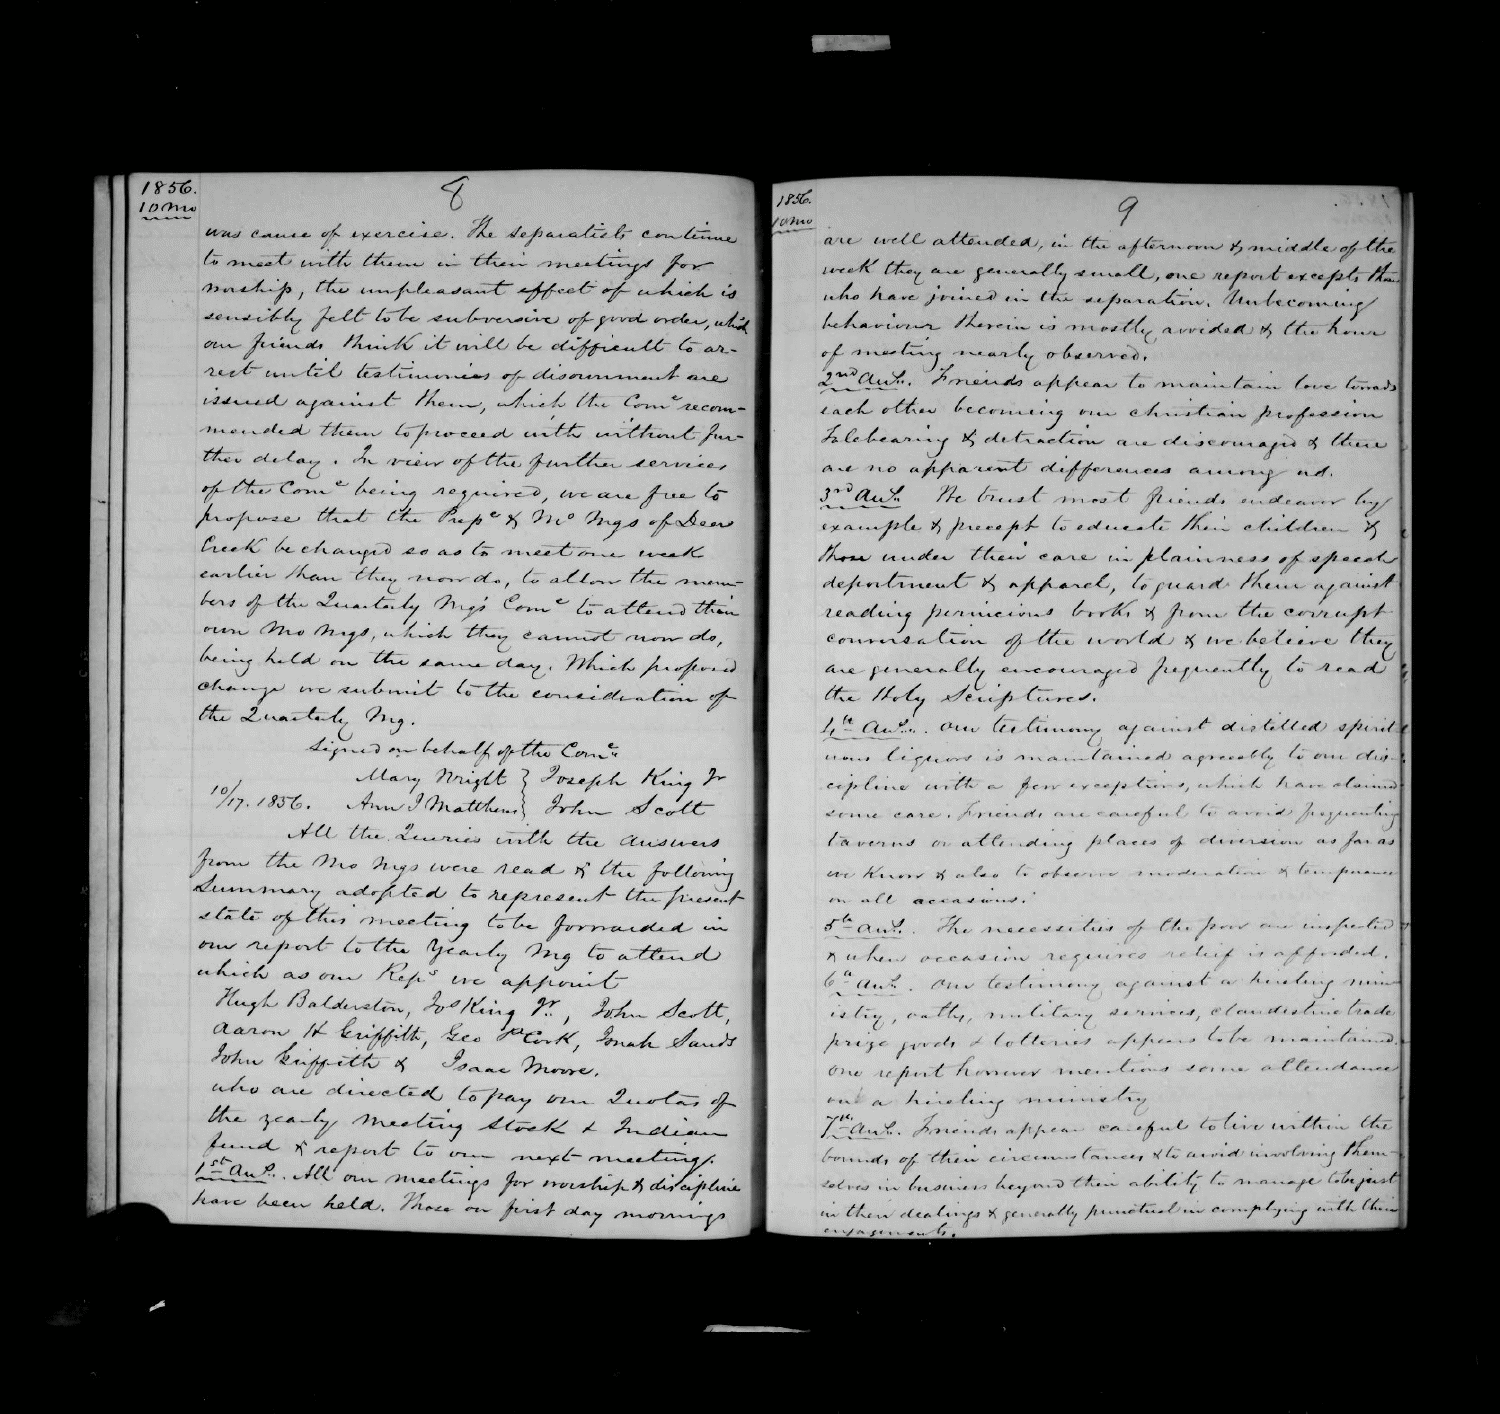 1856.
10 Mo
8
was cause of exercise. The separatists continue
to meet with them in their meetings for
worship, the unpleasant effect of which is
sensibly felt to be subversive of good order, which
our friends think it will be difficult to ar-
rest until testimonies of disownment are
issued against them, which the Come recom-
mended them to proceed with without fur-
ther delay. In view of the further services
of the Come being required, we are free to
propose that the Prepe & Mo Mgs of Deer
Creek be changed so as to meet one week
earlier than they now do, to allow the mem-
bers of the Quarterly Mg's Come to attend their
own Mo Mgs, which they cannot now do,
being held on the same day. Which proposed
change we submit to the consideration of
the Quarterly Mg.
Signed on behalf of the Come
Mary Wright } Joseph King Jr
10/17. 1856. Ann J Matthews } John Scott
All the Queries with the Answers
from the Mo Mgs were read & the following
Summary adopted to represent the present
state of this meeting to be forwarded in
our report to the Yearly Mg to attend
which as our Reps we appoint
Hugh Balderston, Jos King Jr., John Scott,
Aaron H Griffith, Geo P Cook, Jonah Sands
John Griffith & Isaac Moore.
who are directed to pay our Quotas of
the yearly meeting Stock & Indian
fund & report to our next meeting.
1st Ans. All our meetings for worship & discipline
have been held. Those on first day mornings
1856.
10 Mo
9
are well attended, in the afternoon & middle of the
week they are generally small, one report excepts those
who have joined in the separation. Unbecoming
behaviour therein is mostly avoided & the hour
of meeting nearly observed.
2nd Ans. Friends appear to maintain love towards
each other becoming our christian profession
Talebearing & detraction are discouraged & there
are no apparent differences among us.
3rd Ans. We trust most friends endeavor by
example & precept to educate their children &
those under their care in plainness of speech
deportment & apparel, to guard them against
reading pernicious books & from the corrupt
conversation of the world & we believe they
are generally encouraged frequently to read
the Holy Scriptures.
4th Ans. Our testimony against distilled spirit-
uous liquors is maintained agreeably to our dis-
cipline with a few exceptions, which have claimed
some care. Friends are careful to avoid frequenting
taverns or attending places of diversion as far as
we know & also to observe moderation & temperance
on all occasions.
5th Ans. The necessities of the poor are inspected
& when occasion requires relief is afforded.
6th Ans. Our testimony against a hireling min-
istry, oaths, military services, clandestine trade
prize goods & lotteries appears to be maintained.
One report however mentions some attendance
on a hireling ministry
7th Ans. Friends appear careful to live within the
bounds of their circumstances & to avoid involving them-
selves in business beyond their ability to manage to be just
in their dealings & generally punctual in complying with their
engagements.